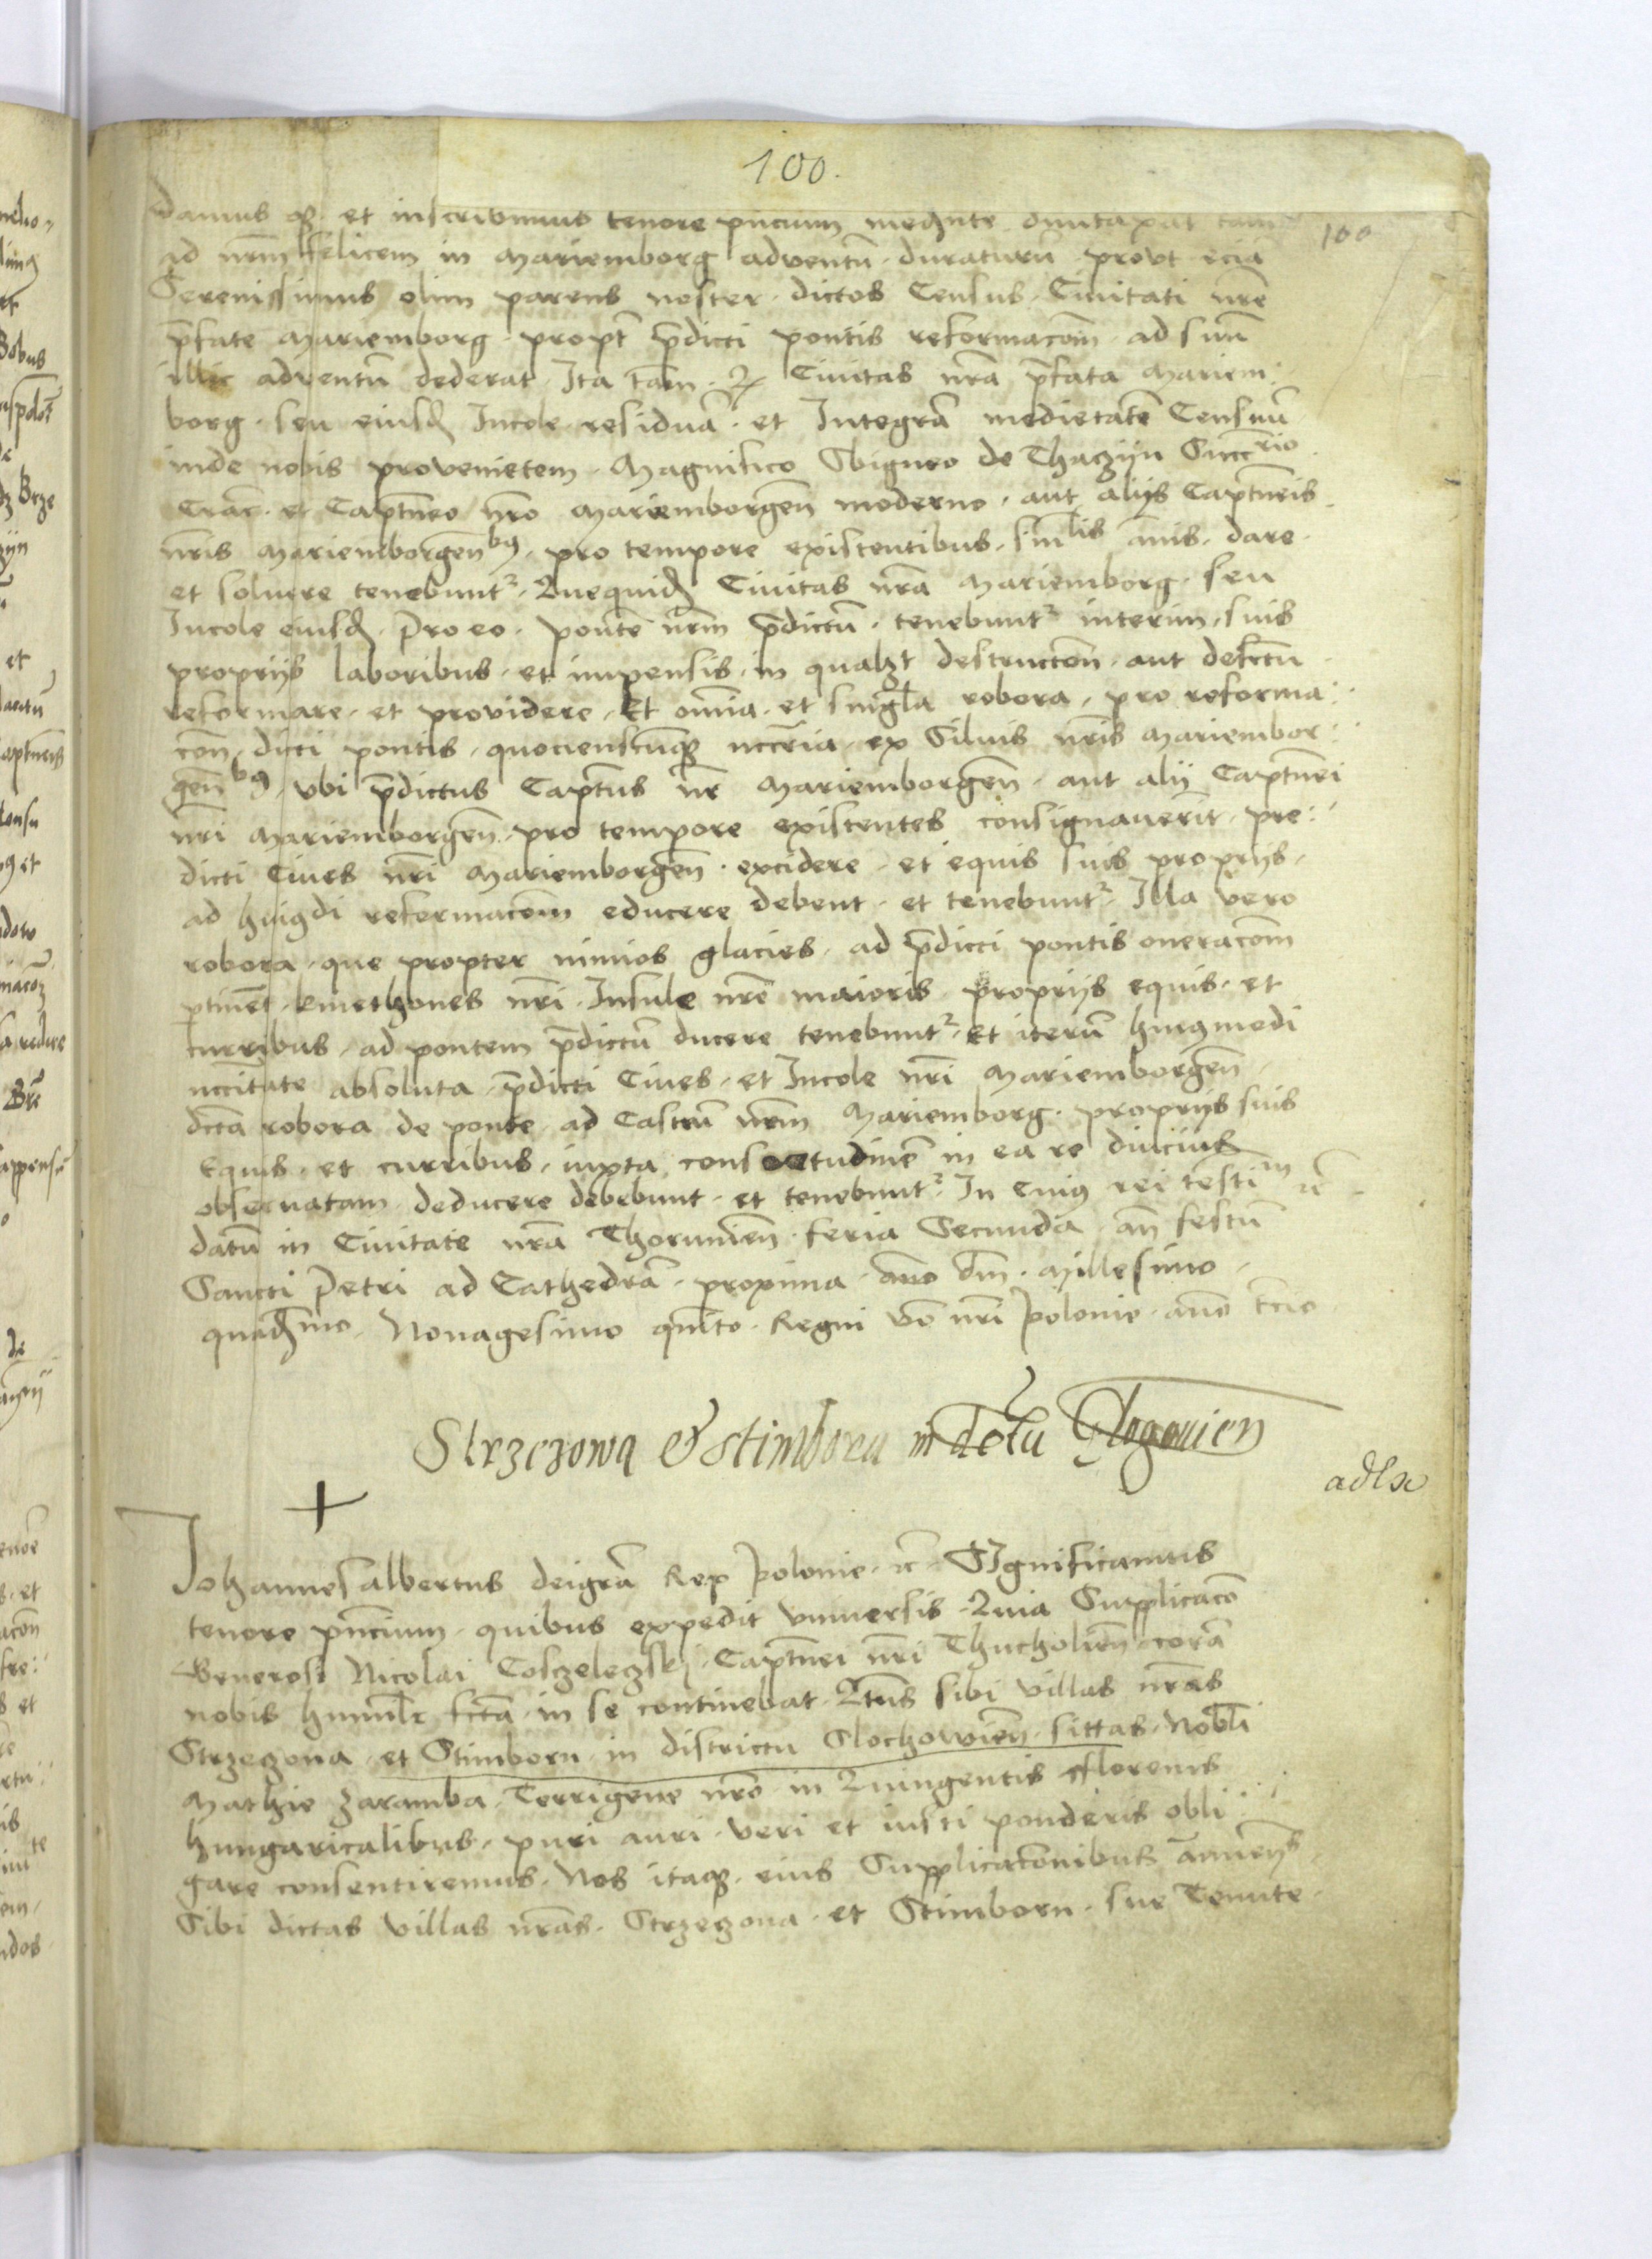 100.
100
damus q3 et inscribimus tenore pncium mednte duntaxat tam
ad nrm felicem in Mariemborg adventu duraturu provt ecia
Serenissimus olim parens noster dictos Census Civitati nre
pfate Mariemborg propt pdicti pontis reformacom ad suu
illic adventu dederat Ita tam q Civitas nra pfata Mariem:
borg seu eiusd Incole residua et Integra medietate Censuu
inde nobis provenietem Magnifico Sbigneo de Thaczijn Succrio
Crac et Captneo nro Mariemborgen moderno aut alijs Captneis
nris Mariemborgenbus pro tempore existentibus sinlis annis dare
et soluere tenebuntr Quequid Civitas nra Mariemborg seu
Incole eiusd pro eo ponte nrm pdictu tenebuntr interim suis
proprijs laboribus et impensis in qualzt destructom aut defectu
reformare et providere Et omia et singla robora pro reforma:
con dicti pontis quocienscunq3 nccria ex Siluis nris Mariembor:
genbus vbi pdictus Captus nr Mariemborgen aut alij Captnei
nri Mariemborgen pro tempore existentes consignauerit pre:
dicti Ciues nri Mariemborgen excidere et equis suis proprijs
ad huiusdi reformacom educere debent et tenebuntr Illa vero
robora que propter nimios glacies ad pdicti pontis oneracom
ptinet kmethones nri Insule nre maioris proprijs equis et
curribus ad pontem pdictu ducere tenebuntr Et iteru huiusmodi
nccitate absoluta pdicti Ciues et Incole nri Mariemborgen
dicta robora de ponte ad Castru nrm Mariemborg proprijs suis
Equis et curribus iuxta consvetudine in ea re diucius
obseruatam deducere debebunt et tenebuntr In Cuius rei testim rc
datu in Civitate nra Thorunien feria Secunda an festu
Sancti Petri ad Cathedra proxima anno dm Millesimo
quadmo Nonagesimo quito Regni vo nri Polonie anno tcio
Strzezowa et stimboru in dctu Glogouien
adLx
Johannes albertus deigra Rex Polonie rc SIgnificamus
tenore pncium quibus expedit vniuersis Quia Supplicaco
Generosi Nicolai Cosczelezskj Captnei nri Thucholien cora
nobis humilr fcta in se continebat Qtus sibi villas nras
Strzezona et Stimborn in districtu Slochowien sittas Nobli
Mathie Zaramba Terrigene nro in Quingentis fflorenis
hungaricalibus puri auri veri et iusti ponderis obli:
gare consentiremus Nos itaq3 eius Supplicacionibus annuens
Sibi dictas villas nras Strzezona et Stimborn sue Tenute